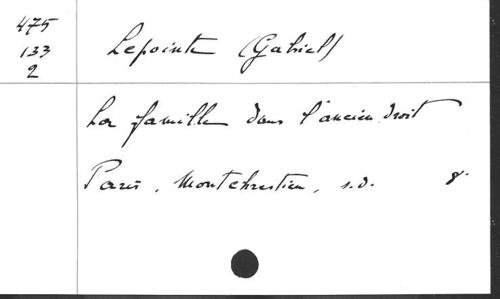 475
133
2
Lepointe (Gabriel)
La famille dans l'ancien droit
Paris, Montchrestien, s.d. 8°